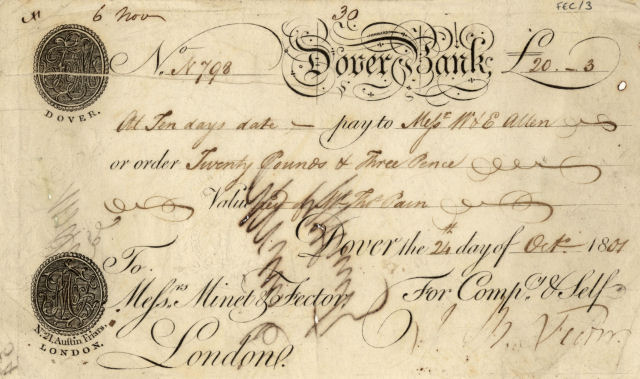 6 Nov 30 FEC/3
No. N 798 Dover Bank, £20.-3
DOVER.
At Ten days date pay to Messrs. W & E Allen
or order Twenty Pounds & Three Pence
Value of Mr. Thos. Pain
Dover the 24th day of Octr. 1801
To
Messrs. Minet & Fector,
For Compy. & Self
No. 21, Austin Friars,
LONDON.
London.
Fector